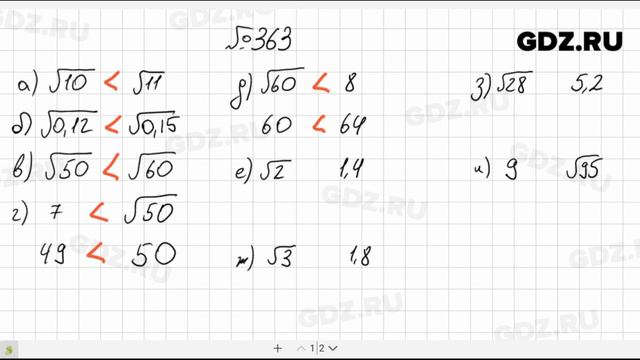 №363
GDZ.RU
а) √10 < √11
б) √0,12 < √0,15
в) √50 < √60
г) 7 < √50
49 < 50
д) √60 < 8
60 < 64
е) √2 1,4
ж) √3 1,8
з) √28 5,2
и) 9 √95
1|2